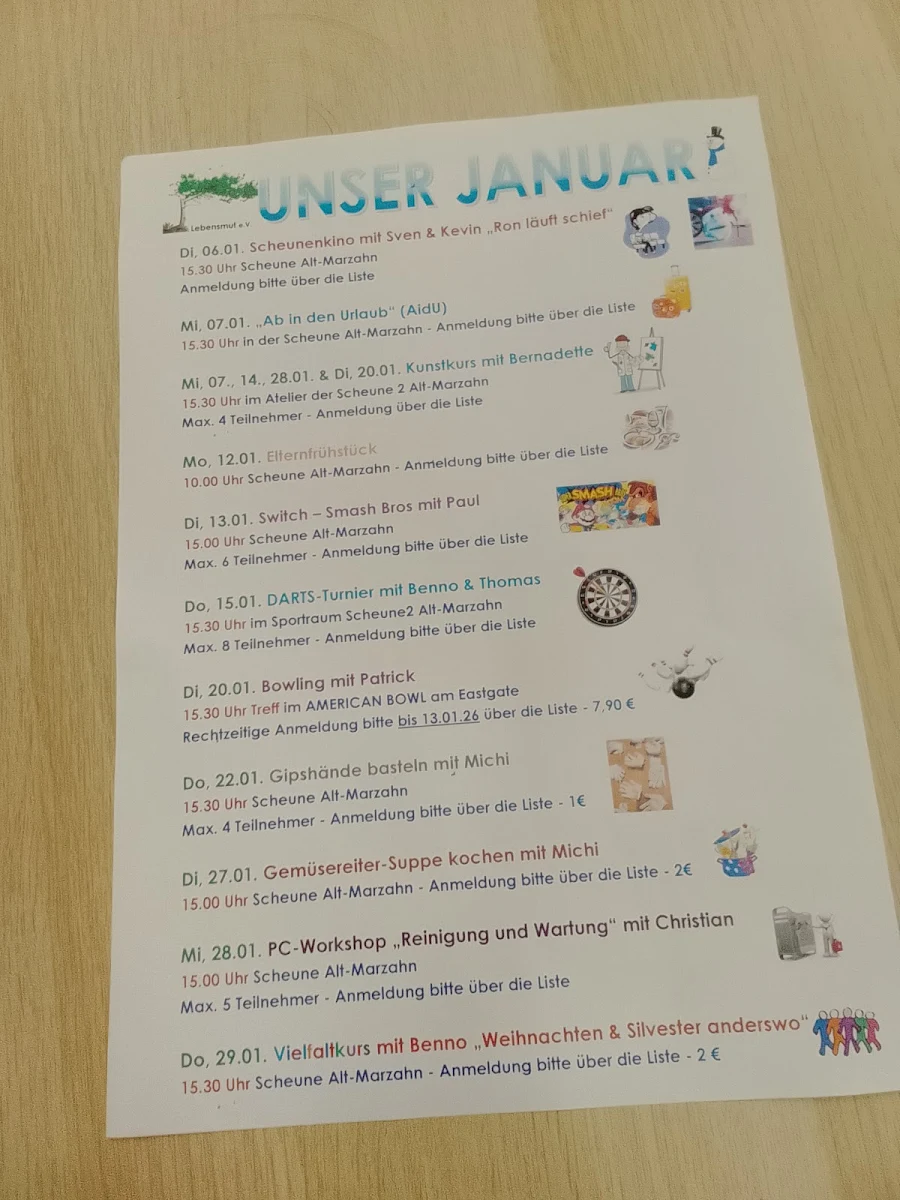 UNSER JANUAR
Lebensmut e.V
Di, 06.01. Scheunenkino mit Sven & Kevin „Ron läuft schief"
15.30 Uhr Scheune Alt-Marzahn
Anmeldung bitte über die Liste
Mi, 07.01. „Ab in den Urlaub" (AidU)
15.30 Uhr in der Scheune Alt-Marzahn - Anmeldung bitte über die Liste
Mi, 07., 14., 28.01. & Di, 20.01. Kunstkurs mit Bernadette
15.30 Uhr im Atelier der Scheune 2 Alt-Marzahn
Max. 4 Teilnehmer - Anmeldung über die Liste
Mo, 12.01. Elternfrühstück
10.00 Uhr Scheune Alt-Marzahn - Anmeldung bitte über die Liste
Di, 13.01. Switch – Smash Bros mit Paul
15.00 Uhr Scheune Alt-Marzahn
Max. 6 Teilnehmer - Anmeldung bitte über die Liste
SMASH
Do, 15.01. DARTS-Turnier mit Benno & Thomas
15.30 Uhr im Sportraum Scheune2 Alt-Marzahn
Max. 8 Teilnehmer - Anmeldung bitte über die Liste
Di, 20.01. Bowling mit Patrick
15.30 Uhr Treff im AMERICAN BOWL am Eastgate
Rechtzeitige Anmeldung bitte bis 13.01.26 über die Liste - 7,90 €
Do, 22.01. Gipshände basteln mit Michi
15.30 Uhr Scheune Alt-Marzahn
Max. 4 Teilnehmer - Anmeldung bitte über die Liste - 1€
Di, 27.01. Gemüsereiter-Suppe kochen mit Michi
15.00 Uhr Scheune Alt-Marzahn - Anmeldung bitte über die Liste - 2€
Mi, 28.01. PC-Workshop „Reinigung und Wartung" mit Christian
15.00 Uhr Scheune Alt-Marzahn
Max. 5 Teilnehmer - Anmeldung bitte über die Liste
Do, 29.01. Vielfaltkurs mit Benno „Weihnachten & Silvester anderswo"
15.30 Uhr Scheune Alt-Marzahn - Anmeldung bitte über die Liste - 2 €